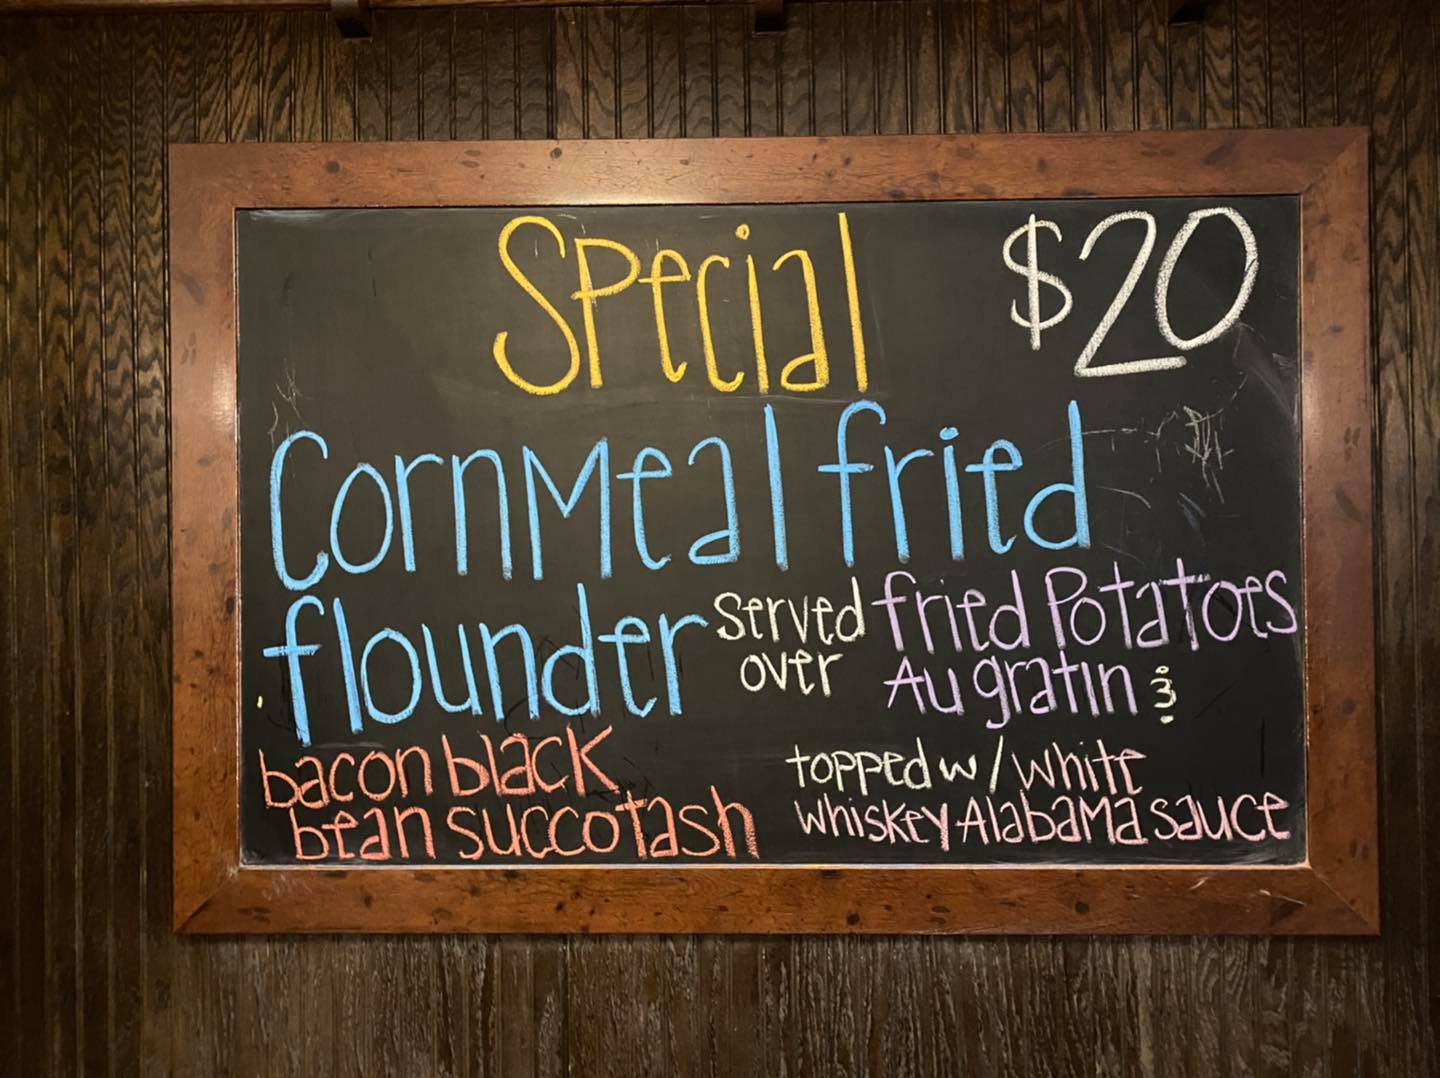 Special $20
Cornmeal fried
flounder served over fried Potatoes Au gratin &
bacon black
bean succotash
topped w/ white
whiskey Alabama sauce